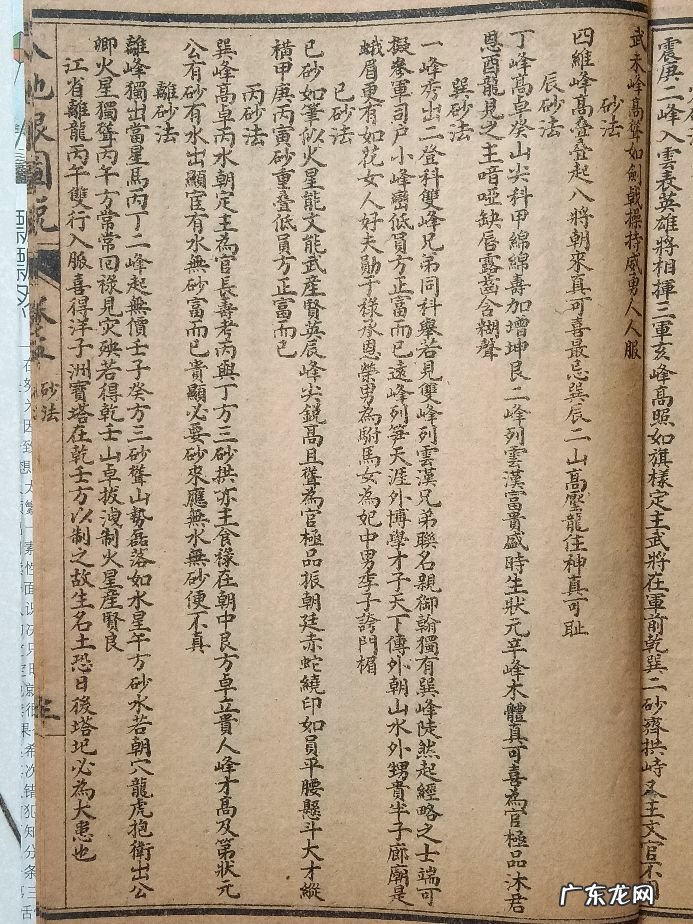 震庚二峰入雲表英雄將相揮三軍亥峰高照如旗樣定主武將在軍前乾巽二砂齊拱峙又主文官不
武未峰高聳如劍戟操持威勇人人服
砂法
四維峰高疊疊起八將朝來真可喜最忌巽辰二山高壓龍住神真可耻
辰砂法
丁峰高卓癸山尖科甲綿綿壽加增坤艮二峰列雲漢富貴盛時生狀元辛峰木體真可喜為官極品沐君
恩酉龍見之主喑啞缺唇露齒含糊聲
巽砂法
一峰秀出二登科雙峰兄弟同科舉若見雙峰列雲漢兄弟聯名親御翰獨有巽峰陡然起經略之士端可
擬參軍司戶小峰巒低員方正富而已遠峰列笋天涯外博學才子天下傳外朝山水外甥貴半子廊廟是
蛾眉更有如花女人好夫勛子祿承恩榮男為駙馬女為妃中男季子誇門楣
巳砂法
巳砂如筆似火星龍文能武產賢英辰峰尖銳高且聳為官極品振朝廷赤蛇繞印如員平腰懸斗大才縱
橫甲庚丙寅砂重疊低員方正富而已
丙砂法
巽峰高卓丙水朝定主為官長壽考丙與丁方三砂拱亦主食祿在朝中艮方卓立貴人峰才高及第狀元
公有砂有水出顯宦有水無砂富而已貴顯必要砂來應無水無砂便不真
離砂法
離峰獨出當星馬丙丁二峰起無價壬子癸方三砂聳山勢磊落如水星午方砂水若朝穴龍虎抱衛出公
卿火星獨聳丙午方常常回祿見災殃若得乾壬山卓拔洩制火星產賢良
江省離龍丙午雙行入脈喜得洋子洲寶塔在乾壬方以制之故生名士恐日後塔圮必為大患也
砂法
广东龙网